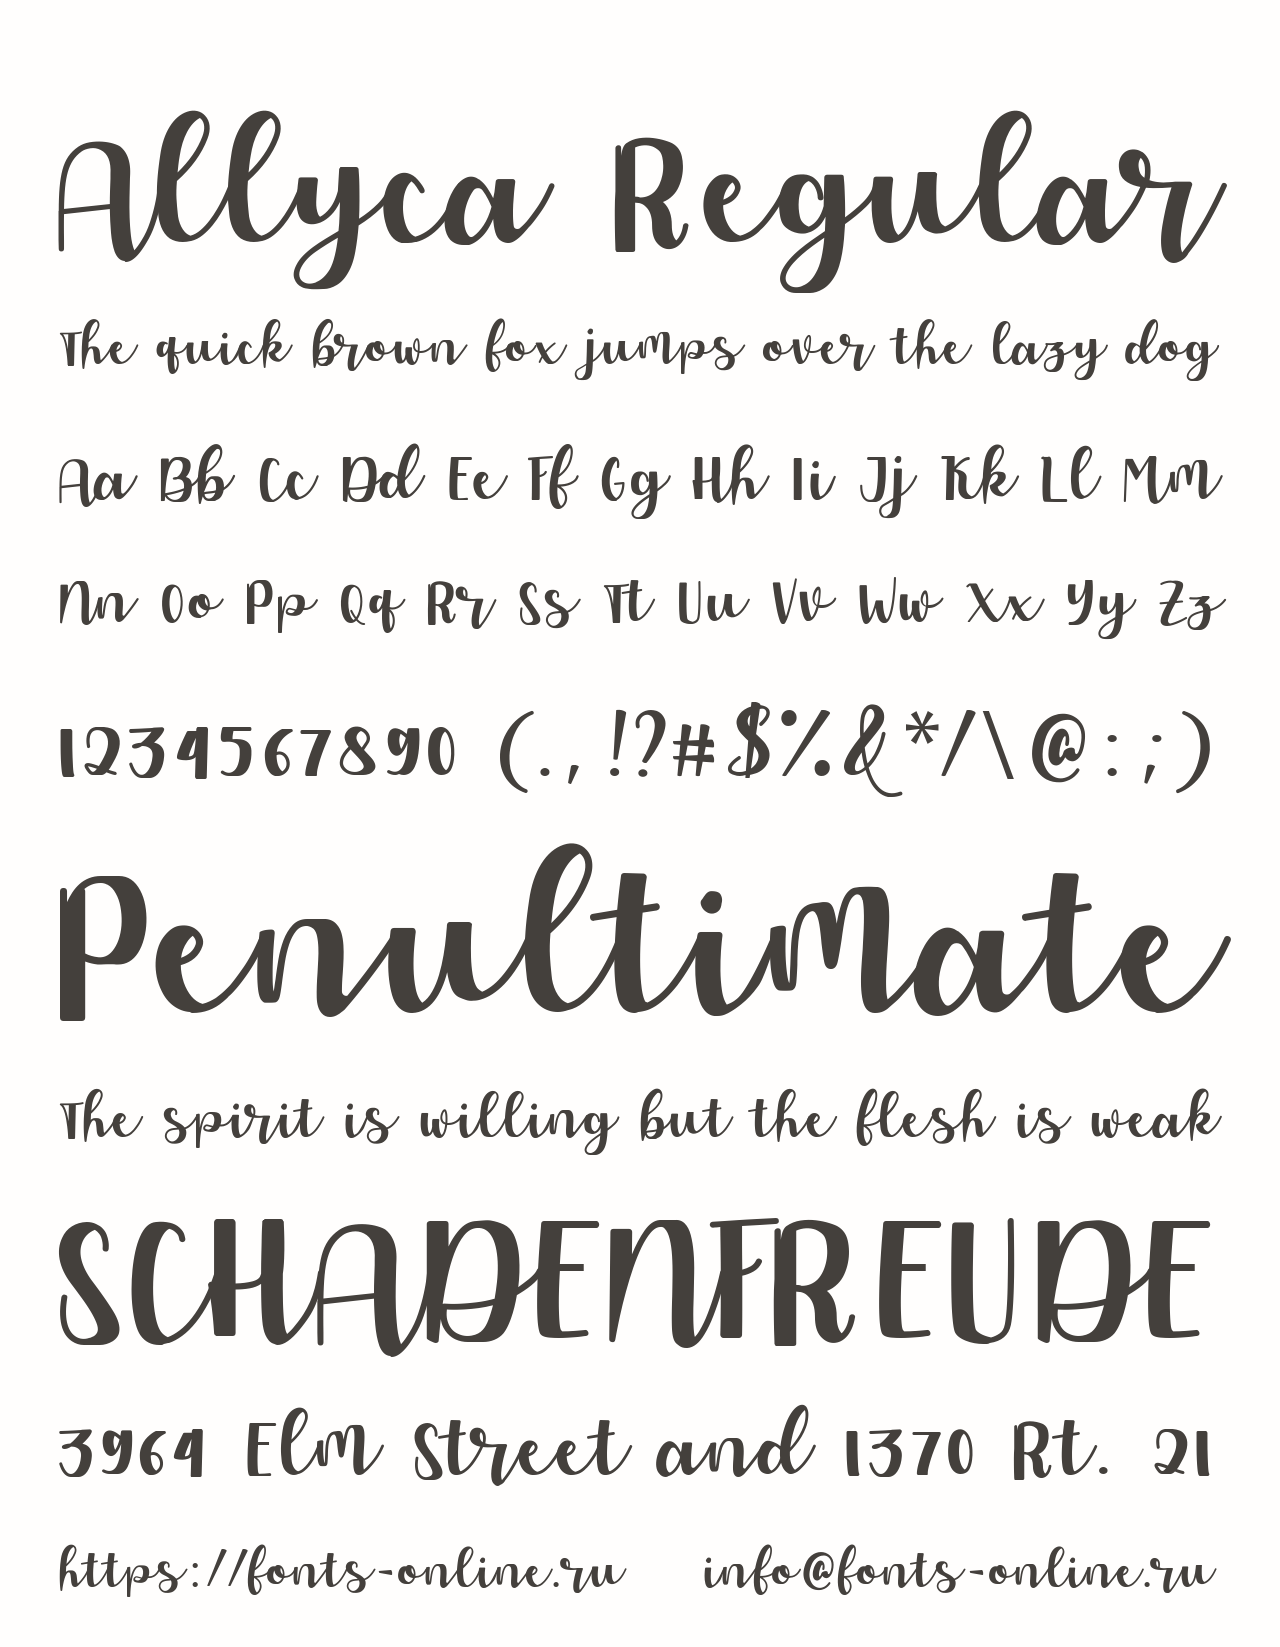 Allyca Regular
The quick brown fox jumps over the lazy dog
Aa Bb Cc Dd Ee Ff Gg Hh Ii Jj Kk Ll Mm
Nn Oo Pp Qq Rr Ss Tt Uu Vv Ww Xx Yy Zz
1234567890 (.,!?#$%&*/\@:;)
Penultimate
The spirit is willing but the flesh is weak
SCHADENFREUDE
3964 Elm Street and 1370 Rt. 21
https://fonts-online.ru info@fonts-online.ru